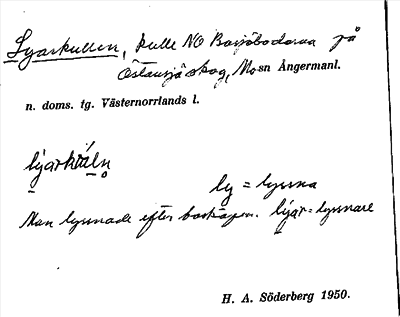 Lyarkullen, kulle NO Borsjöbodarna på
Östansjö skog, Mosn Ångermanl.
n. doms. tg. Västernorrlands l.
lyarkúln
ly = lyssna
Man lyssnade efter boskapen. lyar = lyssnare
H. A. Söderberg 1950.